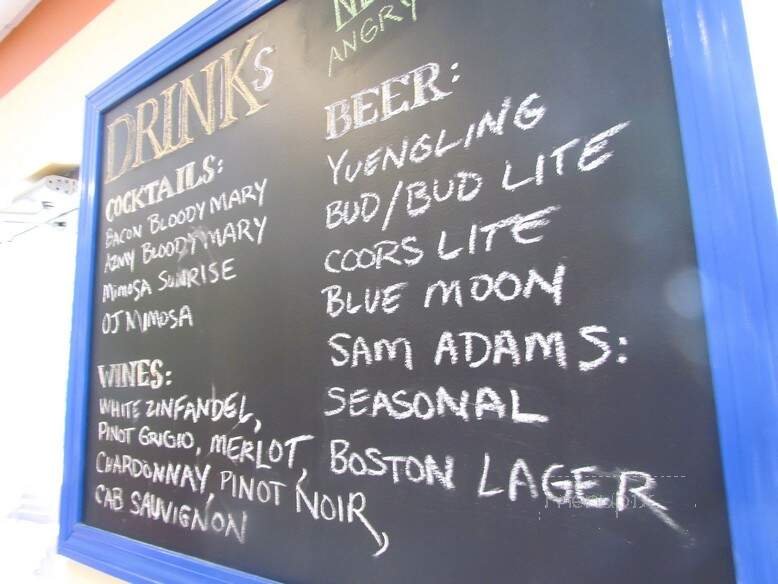 DRINKS
COCKTAILS:
BACON BLOODY MARY
BLOODY MARY
MIMOSA SUNRISE
OJ MIMOSA
WINES:
WHITE ZINFANDEL,
PINOT GRIGIO, MERLOT,
CHARDONNAY, PINOT NOIR,
CAB SAUVIGNON
ANGRY
BEER:
YUENGLING
BUD/BUD LITE
COORS LITE
BLUE MOON
SAM ADAMS:
SEASONAL
BOSTON LAGER